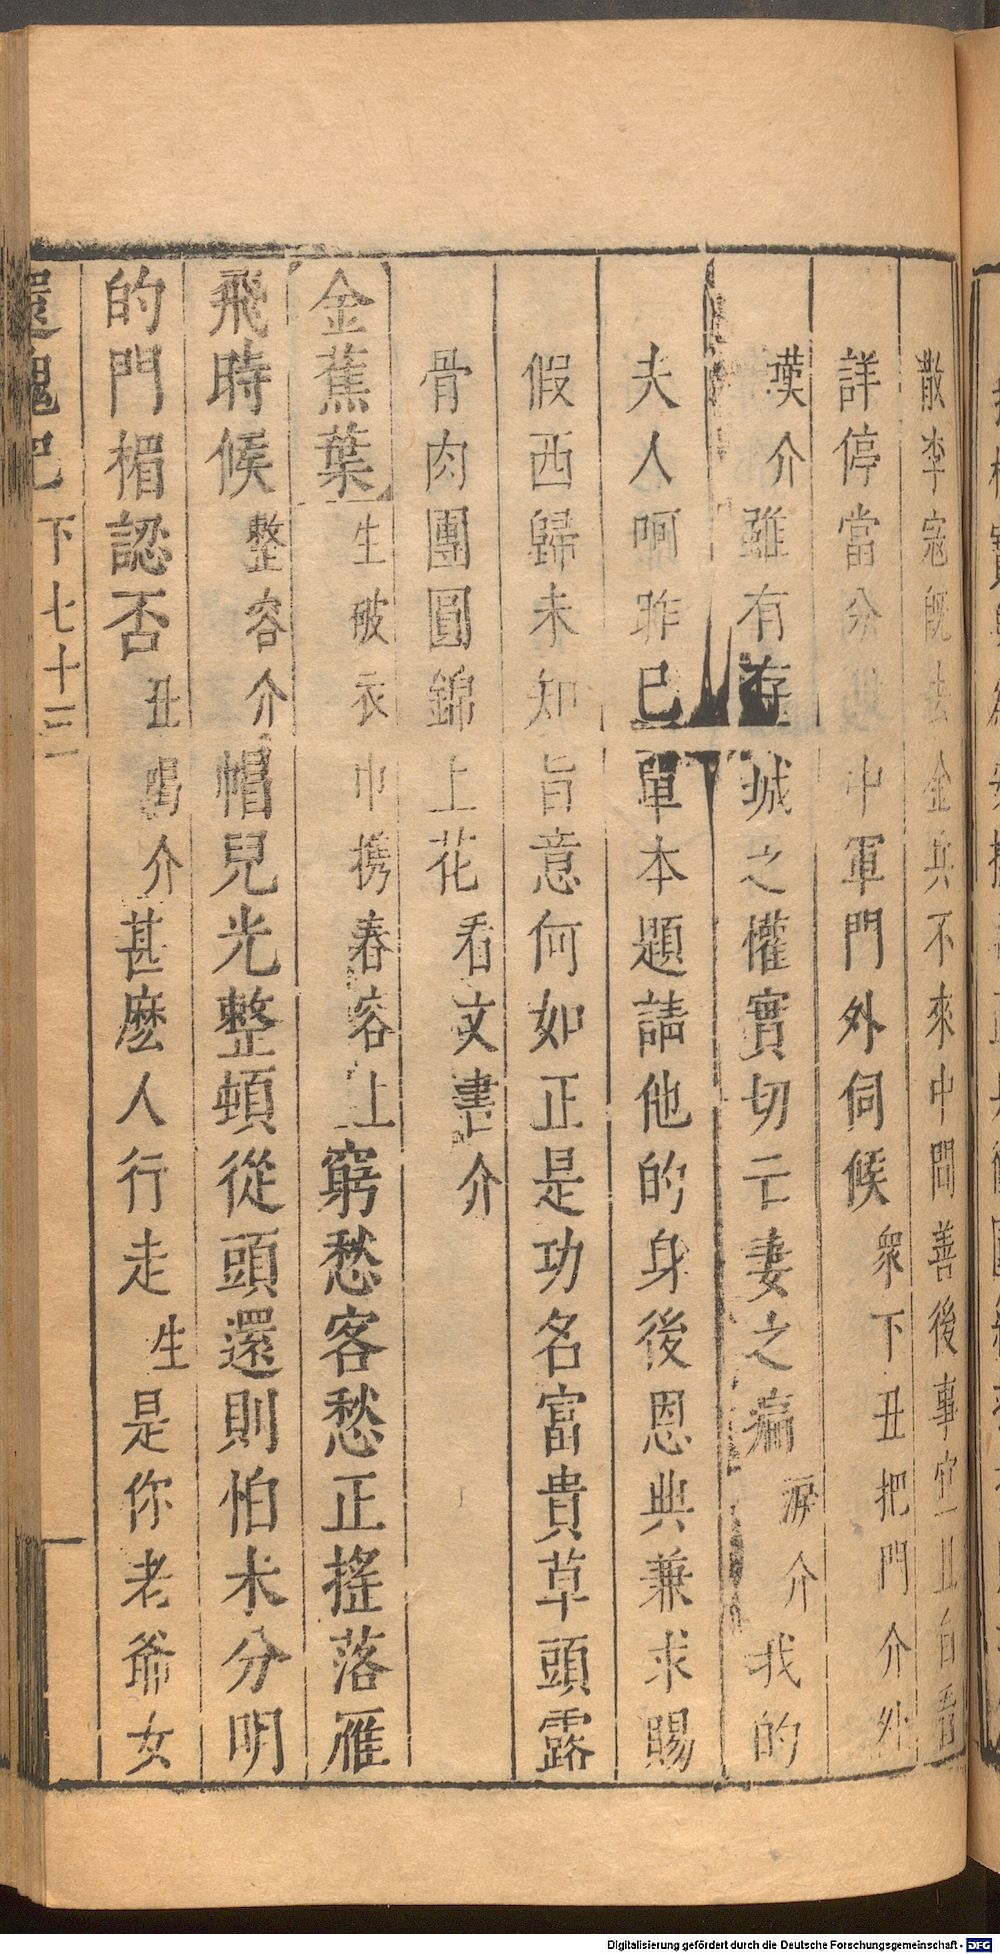 散李寇旣去金兵不來中間善後事宜且自看
詳停當分付中軍門外伺候衆下丑把門介外
嘆介雖有存城之懽實切亡妻之痛淚介我的
夫人呵昨已單本題請他的身後恩典兼求賜
假西歸未知旨意何如正是功名富貴草頭露
骨肉團圓錦上花看文書介
金蕉葉生破衣巾携春容上窮愁客愁正搖落雁
飛時候整容介帽兒光整頓從頭還則怕未分明
的門楣認否丑喝介甚麽人行走生是你老爺女
還魂記 下七十三
Digitalisierung gefördert durch die Deutsche Forschungsgemeinschaft - DFG